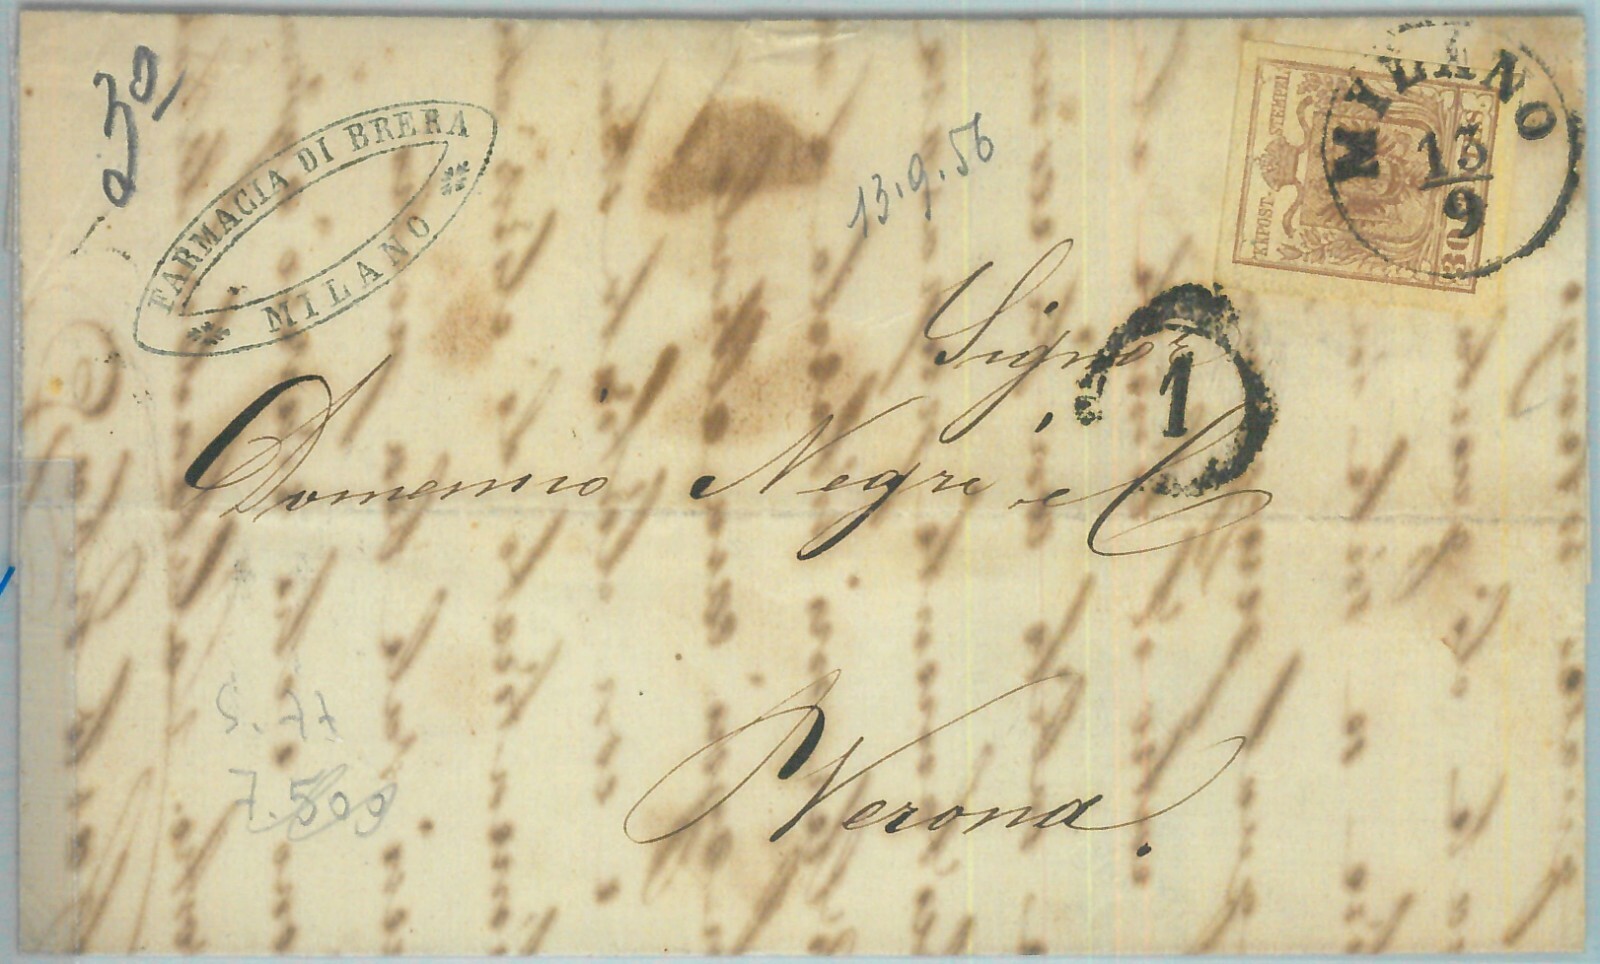 a 30
FARMACIA DI BRERA
MILANO
13.9.56
KKPOST-STEMPEL
30
MILANO
13
9
Signor
1
Domenico Negri e C
Verona.
S. 77
7.500